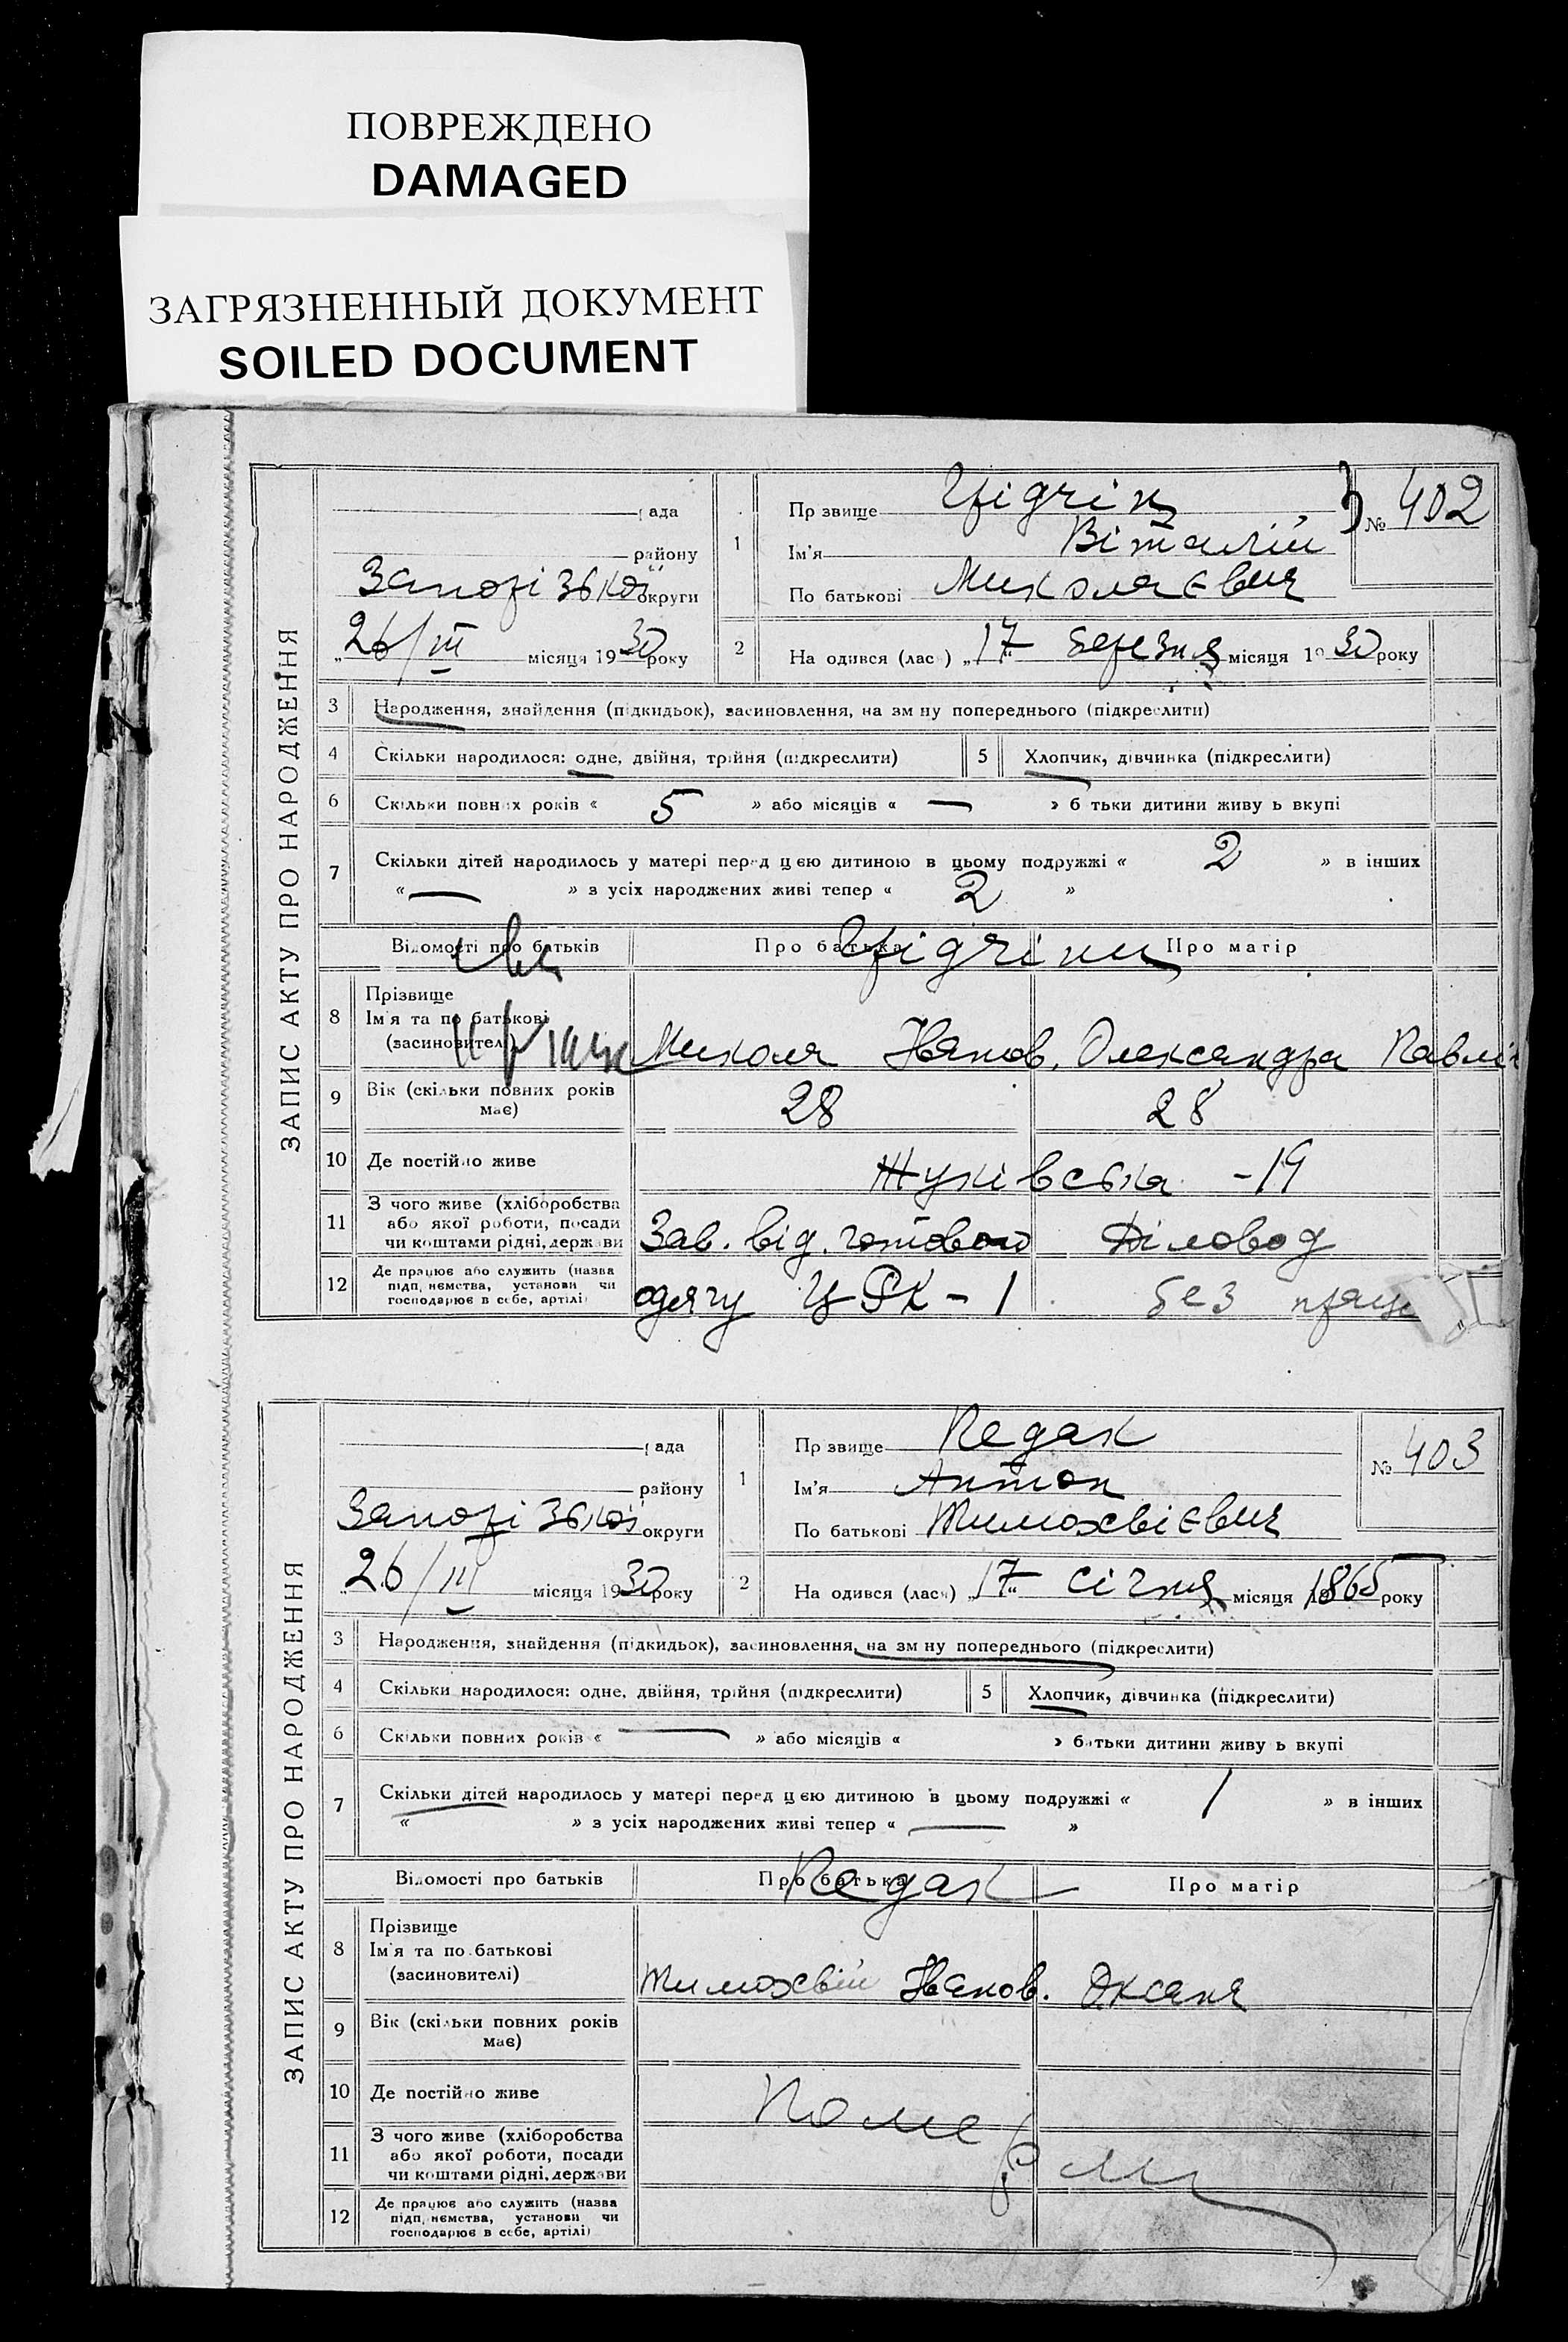 ПОВРЕЖДЕНО
DAMAGED
ЗАГРЯЗНЕННЫЙ ДОКУМЕНТ
SOILED DOCUMENT
ЗАПИС АКТУ ПРО НАРОДЖЕННЯ
ада
району
Запорізької округи
„26/III місяця 1930 року
1
Пр звище
Ім'я Віталій
По батькові Миколаєвич
№ 402
2
На одився (лас ) „17" березня місяця 1930 року
3 Народження, знайдення (підкидьок), засиновлення, на зм ну попереднього (підкреслити)
4 Скільки народилося: одне, двійня, трійня (підкреслити)
5 Хлопчик, дівчинка (підкреслити)
6 Скільки повних років « 5 » або місяців « — » б тьки дитини живу ь вкупі
7 Скільки дітей народилось у матері перед цією дитиною в цьому подружжі « 2 » в інших
« — » з усіх народжених живі тепер « 2 »
Відомості про батьків Про батька Про матір
8 Прізвище
Ім'я та по батькові
(засиновителі)
Микола Іванов. Олександра Павлів
9 Вік (скільки повних років має) 28 28
10 Де постійно живе Жуківська - 19
11 З чого живе (хліборобства або якої роботи, посади чи коштами рідні, держави Зав. від. готового Діловод
12 Де працює або служить (назва підп, иємства, установи чи господарює в себе, артілі) одягу ЦРК - 1 без праці
ЗАПИС АКТУ ПРО НАРОДЖЕННЯ
ада
району
Запорізької округи
„26/III місяця 1930 року
1
Пр звище Редак
Ім'я Антон
По батькові Тимохвієвич
№ 403
2
На одився (лась) „17" січня місяця 1865 року
3 Народження, знайдення (підкидьок), засиновлення, на зм ну попереднього (підкреслити)
4 Скільки народилося: одне, двійня, трійня (підкреслити)
5 Хлопчик, дівчинка (підкреслити)
6 Скільки повних років « — » або місяців « » батьки дитини живу ь вкупі
7 Скільки дітей народилось у матері перед цією дитиною в цьому подружжі « / » в інших
« » з усіх народжених живі тепер « — »
Відомості про батьків Про батька Про матір
Редак
8 Прізвище
Ім'я та по батькові
(засиновителі)
Тимохвій Іванов. Оксана
9 Вік (скільки повних років має)
10 Де постійно живе
Поме
11 З чого живе (хліборобства або якої роботи, посади чи коштами рідні, держави
рли
12 Де працює або служить (назва підп, иємства, установи чи господарює в себе, артілі)